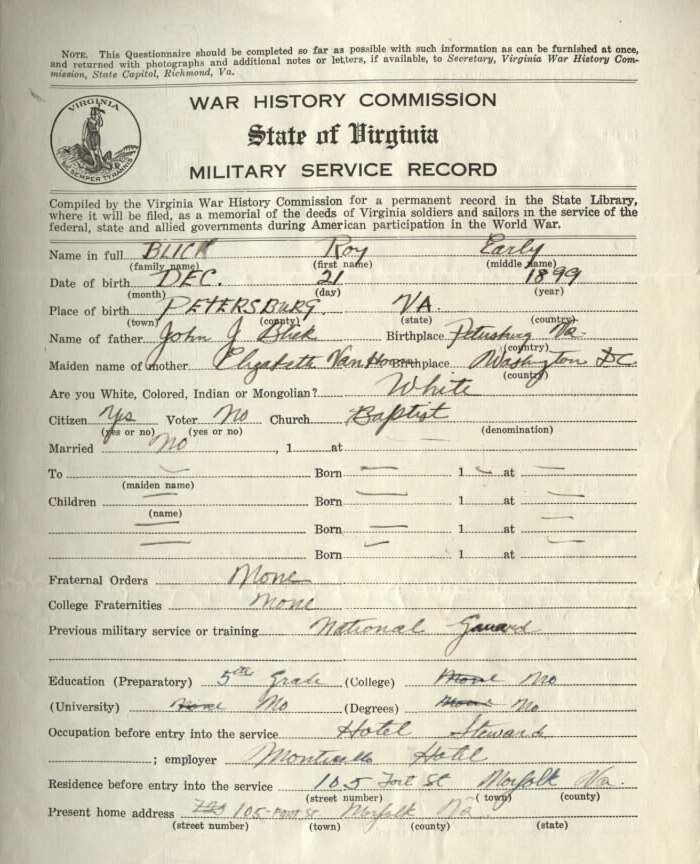 NOTE. This Questionnaire should be completed so far as possible with such information as can be furnished at once,
and returned with photographs and additional notes or letters, if available, to Secretary, Virginia War History Com-
mission, State Capitol, Richmond, Va.
VIRGINIA
SIC SEMPER TYRANNIS
WAR HISTORY COMMISSION
State of Virginia
MILITARY SERVICE RECORD
Compiled by the Virginia War History Commission for a permanent record in the State Library,
where it will be filed, as a memorial of the deeds of Virginia soldiers and sailors in the service of the
federal, state and allied governments during American participation in the World War.
Name in full BLICK Roy Early
(family name) (first name) (middle name)
Date of birth DEC. 21 1899
(month) (day) (year)
Place of birth PETERSBURG. VA.
(town) (county) (state) (country)
Name of father John J Blick Birthplace Petersburg Va.
(country)
Maiden name of mother Elizabeth Van Birthplace Washington D.C.
(country)
Are you White, Colored, Indian or Mongolian? White
Citizen Yes Voter No Church Baptist
(yes or no) (yes or no) (denomination)
Married No , 1 at
To Born 1 at
(maiden name)
Children Born 1 at
(name)
Born 1 at
Born 1 at
Fraternal Orders None
College Fraternities none
Previous military service or training National Gauard
Education (Preparatory) 5th Grade (College) None No
(University) None No (Degrees) None No
Occupation before entry into the service Hotel Steward
; employer Monticello Hotel
Residence before entry into the service 105 Fort St Norfolk Va.
(street number) (town) (county)
Present home address 105 Fort St Norfolk Va.
(street number) (town) (county) (state)